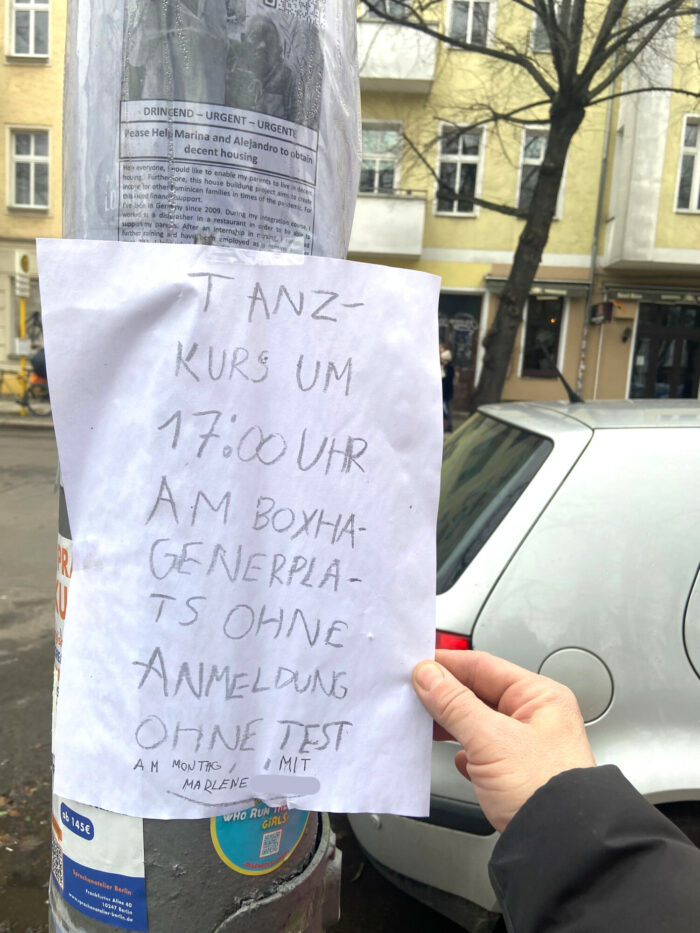 DRINGEND – URGENT – URGENTE
Please Help Marina and Alejandro to obtain
decent housing
everyone, I would like to enable my parents to live in decent
housing. Furthermore, this house building project aims to create
income for other Dominican families in times of the pandemic. For
this need financial support.
I've been in Germany since 2009. During my integration course, I
worked as a dishwasher in a restaurant in order to be able to
support my parents. After an internship in nursing, I
further training and have been employed as a
TANZ-
KURS UM
17:00 UHR
AM BOXHA-
GENERPLA-
TS OHNE
ANMELDUNG
OHNE TEST
AM MONTAG, MIT
MARLENE
PR
KU
ab 145€
WHO RUN THE
GIRLS
Sprachenatelier Berlin
Frankfurter Allee 40
10247 Berlin
www.sprachenatelier-berlin.de